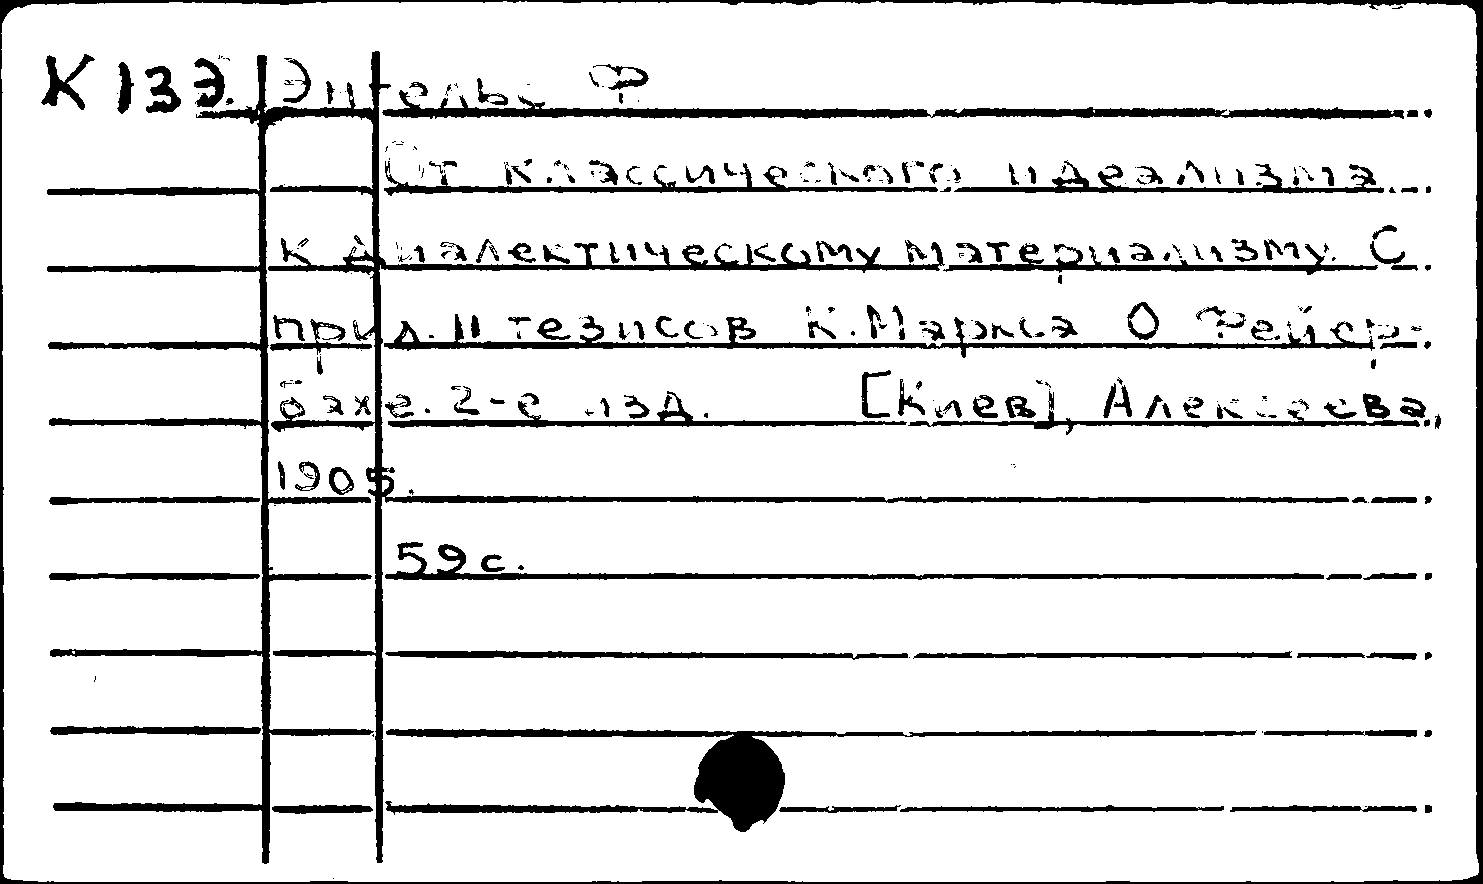 К 13Э. Энгельс Ф.
От классического идеализма
к диалектическому материализму. С
прил. 11 тезисов К. Маркса О Фейер-
бахе. 2-е изд. [Киев], Алексеева,
1905.
59 с.